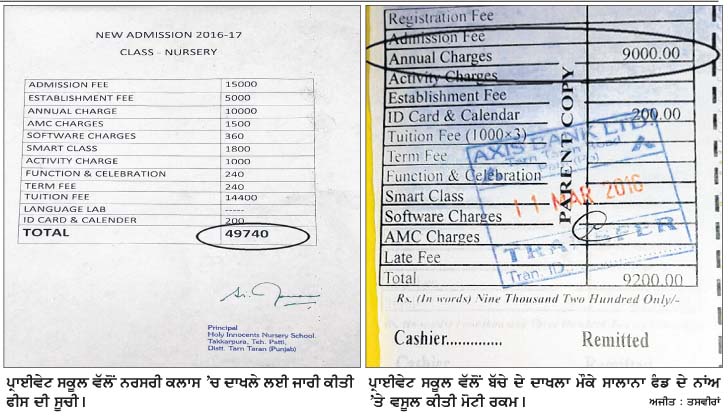 NEW ADMISSION 2016-17
CLASS - NURSERY
ADMISSION FEE 15000
ESTABLISHMENT FEE 5000
ANNUAL CHARGE 10000
AMC CHARGES 1500
SOFTWARE CHARGES 360
SMART CLASS 1800
ACTIVITY CHARGE 1000
FUNCTION & CELEBRATION 240
TERM FEE 240
TUITION FEE 14400
LANGUAGE LAB -----
ID CARD & CALENDER 200
TOTAL 49740
Principal
Holy Innocents Nursery School.
Takkarpura, Teh. Patti,
Distt. Tarn Taran (Punjab)
ਪ੍ਰਾਈਵੇਟ ਸਕੂਲ ਵੱਲੋਂ ਨਰਸਰੀ ਕਲਾਸ 'ਚ ਦਾਖਲੇ ਲਈ ਜਾਰੀ ਕੀਤੀ
ਫੀਸ ਦੀ ਸੂਚੀ।
Registration Fee
Admission Fee
Annual Charges 9000.00
Activity Charges
Establishment Fee
ID Card & Calendar 200.00
Tuition Fee (1000×3)
Term Fee
Function & Celebration
Smart Class
Software Charges
AMC Charges
Late Fee
Total 9200.00
PARENT COPY
AXIS BANK LTD.
Tarn Taran Road
11 MAR 2016
TRANSFER
Tran. ID
Rs. (In words) Nine Thousand Two Hundred Only/-
Cashier.............. Remitted
ਪ੍ਰਾਈਵੇਟ ਸਕੂਲ ਵੱਲੋਂ ਬੱਚੇ ਦੇ ਦਾਖਲਾ ਮੌਕੇ ਸਾਲਾਨਾ ਫੰਡ ਦੇ ਨਾਂਅ
'ਤੇ ਵਸੂਲ ਕੀਤੀ ਮੋਟੀ ਰਕਮ। ਅਜੀਤ : ਤਸਵੀਰਾਂ